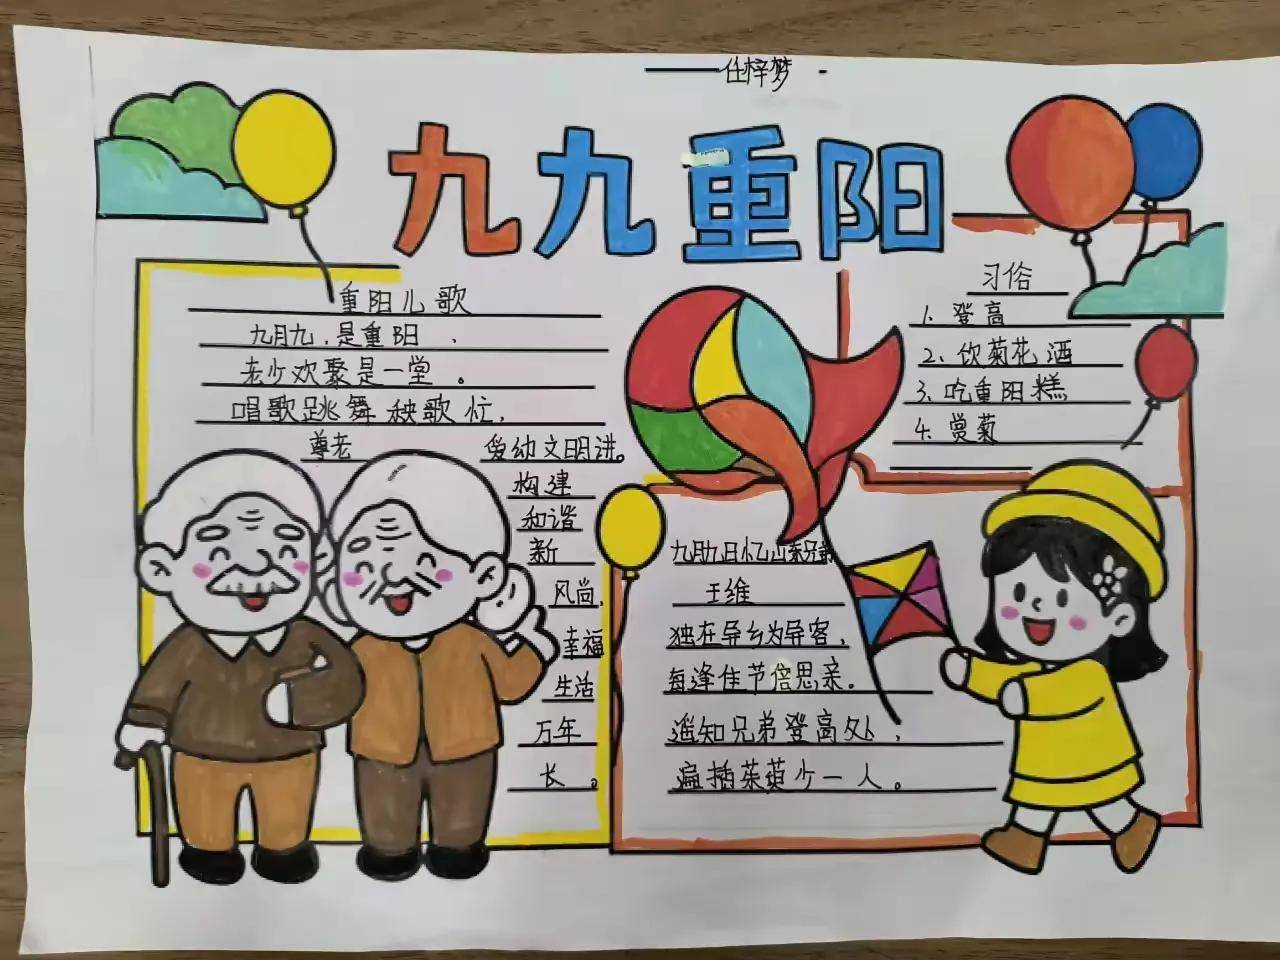 ——任梓梦
九九重阳
重阳儿歌
九月九，是重阳，
老少欢聚是一堂。
唱歌跳舞秧歌忙，
尊老 爱幼文明讲。
构建
和谐
新
风尚，
幸福
生活
万年
长。
习俗
1、登高
2、饮菊花酒
3、吃重阳糕
4、赏菊
九月九日忆山东兄弟
王维
独在异乡为异客，
每逢佳节倍思亲。
遥知兄弟登高处，
遍插茱萸少一人。